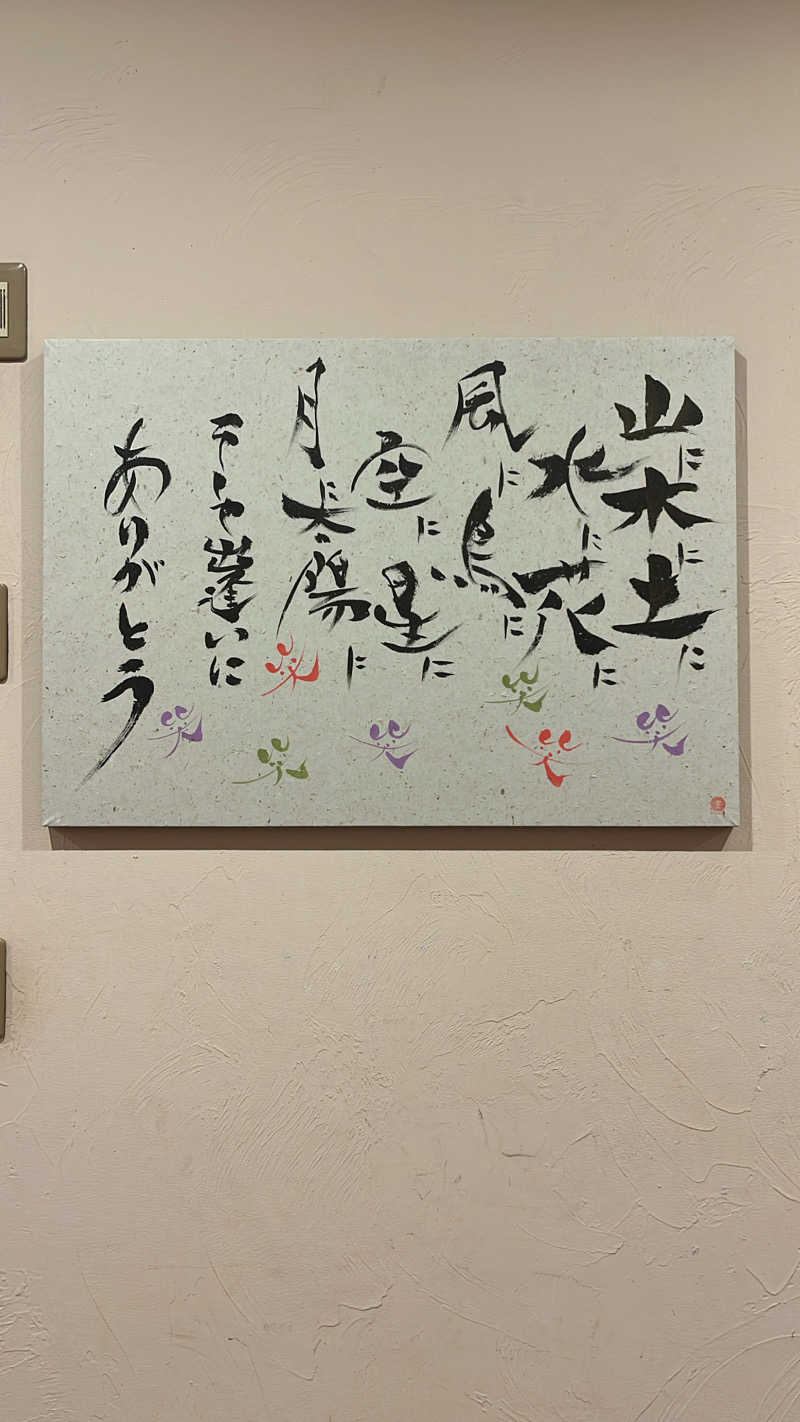 山に木に土に
水に花に
風に鳥に
空に星に
月に太陽に
そして出逢いに
ありがとう
笑
笑
笑
笑
笑
笑
笑